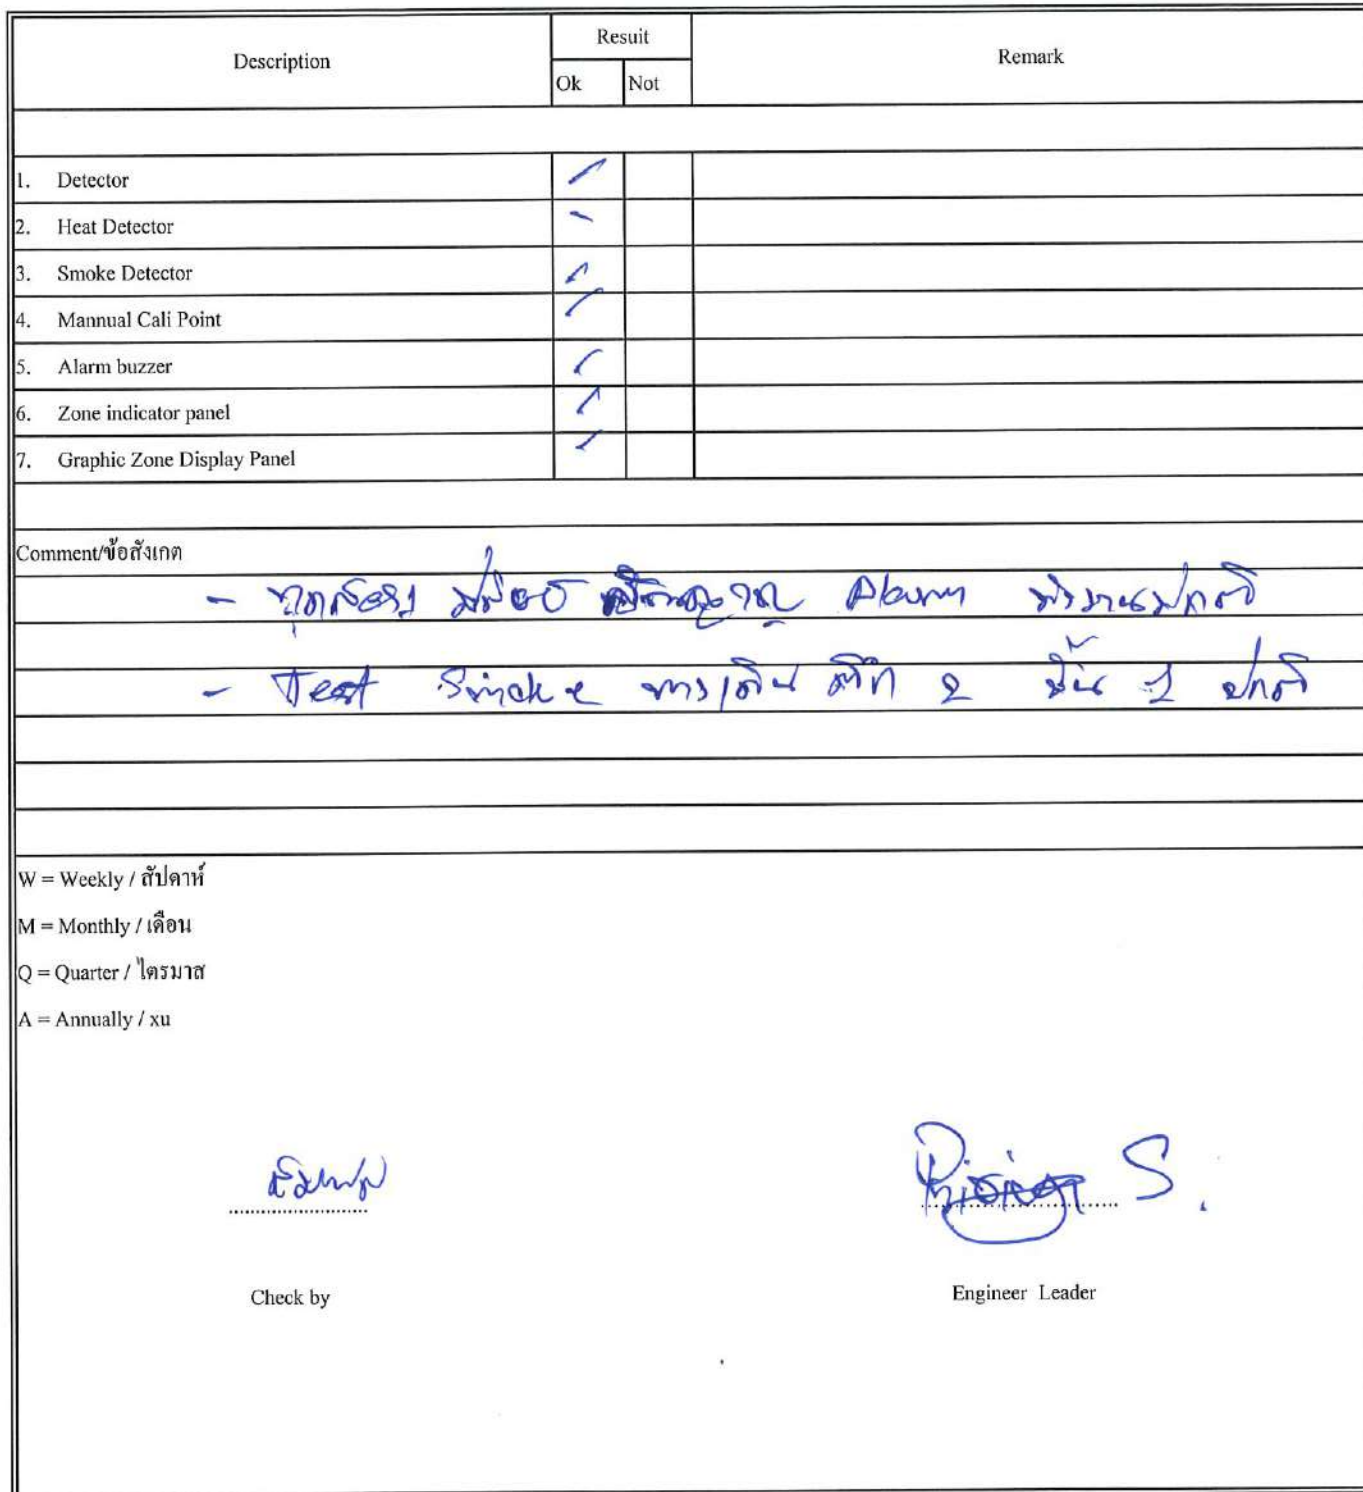 Description
Resuit
Remark
Ok
Not
1. Detector
2. Heat Detector
3. Smoke Detector
4. Mannual Cali Point
5. Alarm buzzer
6. Zone indicator panel
7. Graphic Zone Display Panel
Comment/ข้อสังเกต
- Alarm ทำงานปกติ
- Test Smoke ทางเดิน ตึก 2 ชั้น 1 ปกติ
W = Weekly / สัปดาห์
M = Monthly / เดือน
Q = Quarter / ไตรมาส
A = Annually / xu
S.
Check by
Engineer Leader